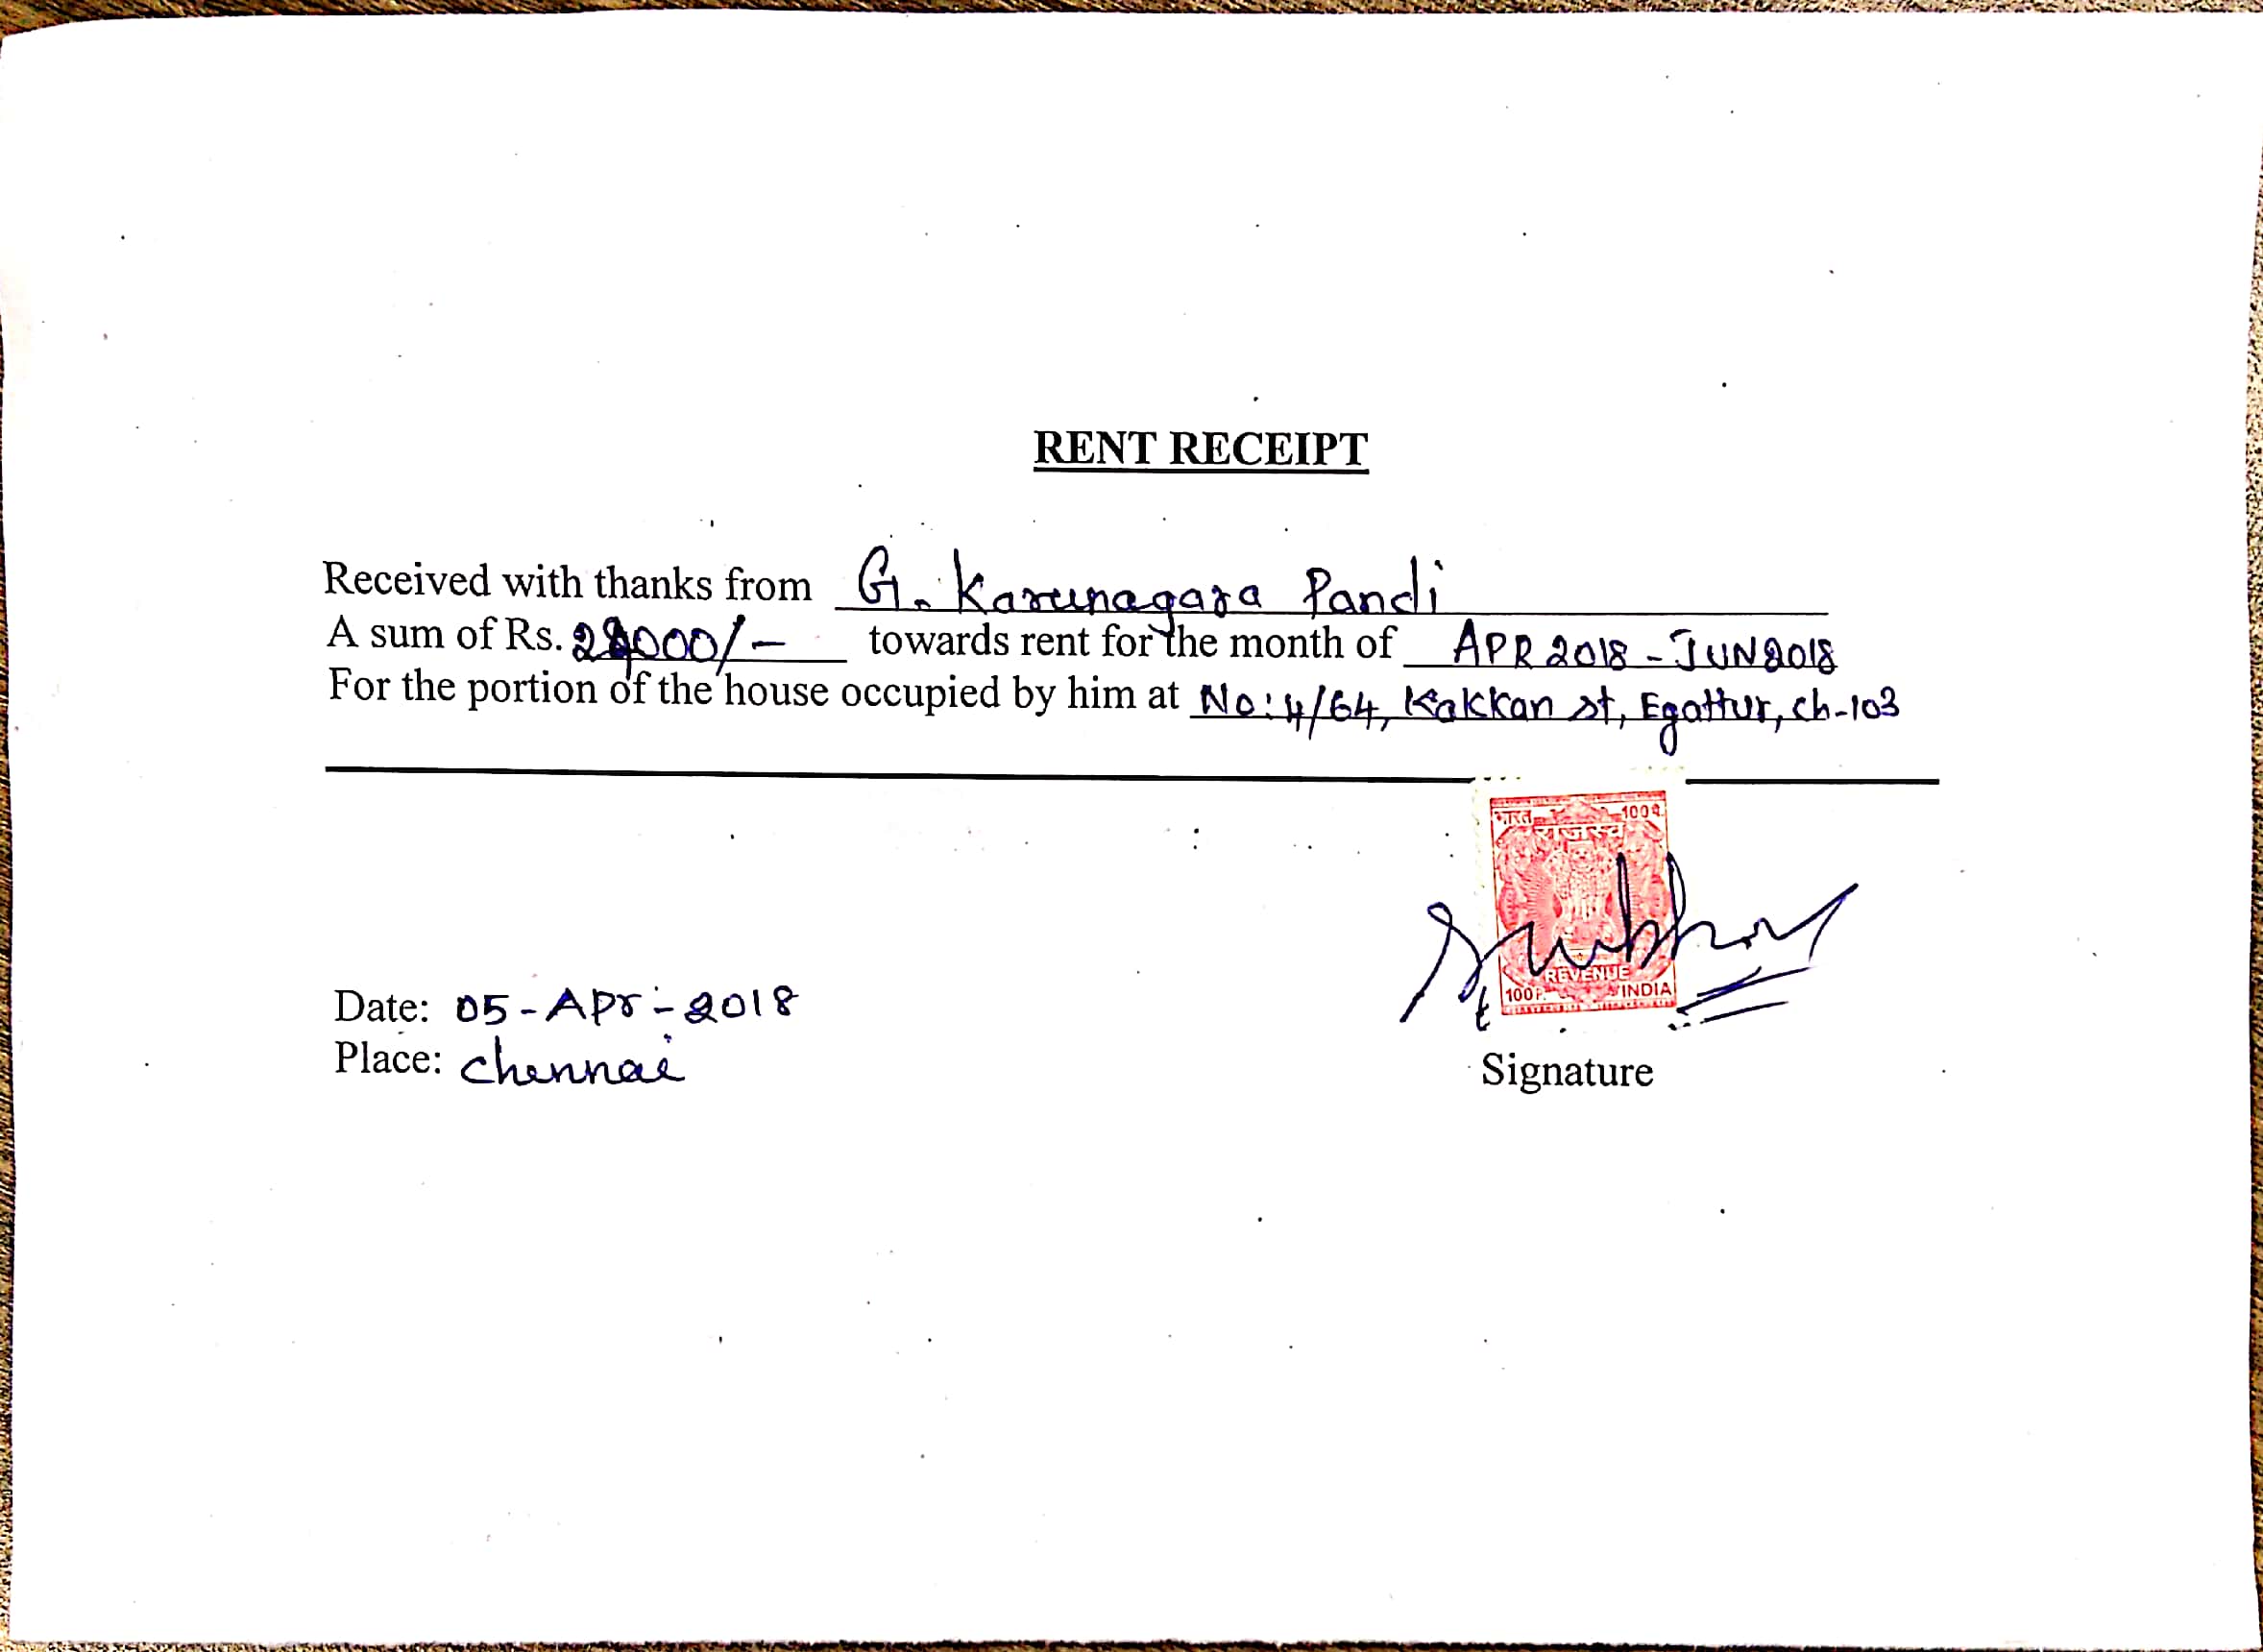 RENT RECEIPT
Received with thanks from G. Karunagara Pandi
A sum of Rs. towards rent for the month of APR 2018 - JUN 2018
For the portion of the house occupied by him at No: 4/64, Kakkan st, Egattur, ch-103
भारत 100प.
राजस्व
REVENUE
100P. INDIA
Date: 05-Apr-2018
Place: chennai
Signature